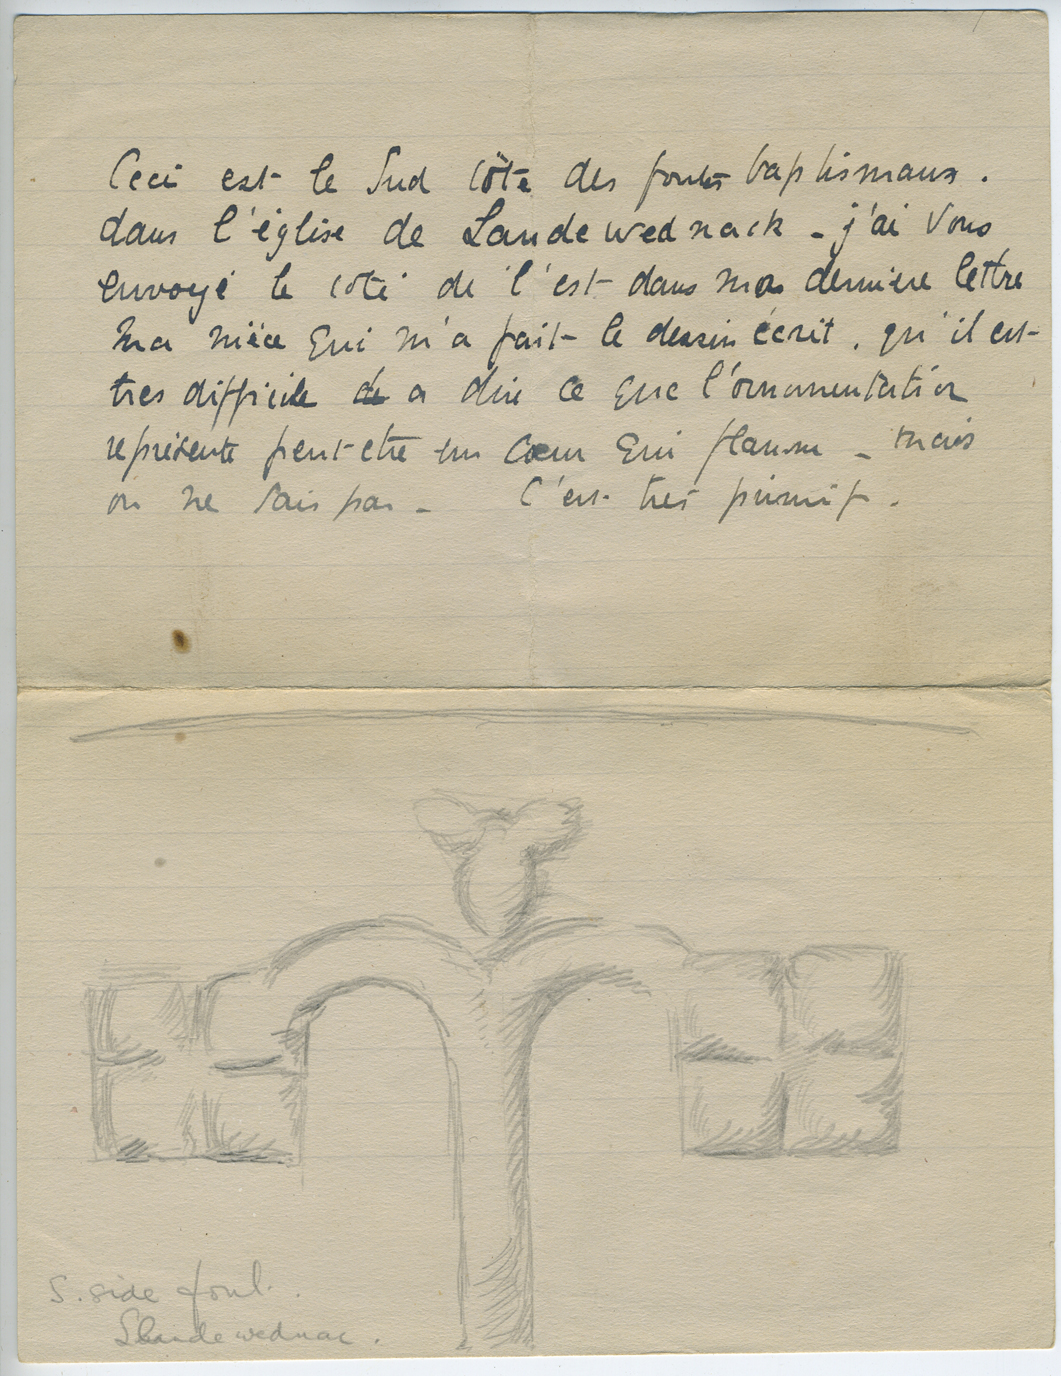 Ceci est le Sud côte des fonts baptismaux.
dans l'église de Landewednack - j'ai Vous
envoyé le coté de l'est dans ma dernière lettre
ma nièce qui m'a fait le dessin écrit, qu'il est
tres difficile de a dire ce que l'ornamentation
représente peut-etre un cœur qui flamm - mais
on ne sais pas - C'est tres primif.
S. side font.
Llandewednac.